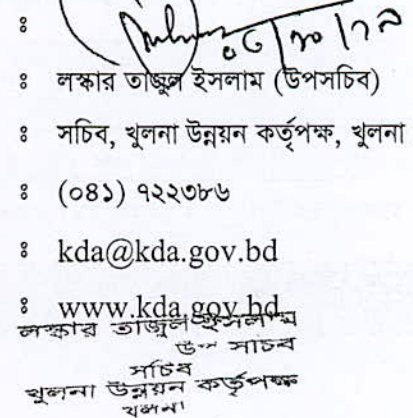 ঃ
ঃ লস্কার তাজুল ইসলাম (উপসচিব)
ঃ সচিব, খুলনা উন্নয়ন কর্তৃপক্ষ, খুলনা
ঃ (০৪১) ৭২২৩৮৬
ঃ kda@kda.gov.bd
ঃ www.kda.gov.bd
লস্কার তাজুল ইসলাম
উপ সচিব
সচিব
খুলনা উন্নয়ন কর্তৃপক্ষ
খুলনা